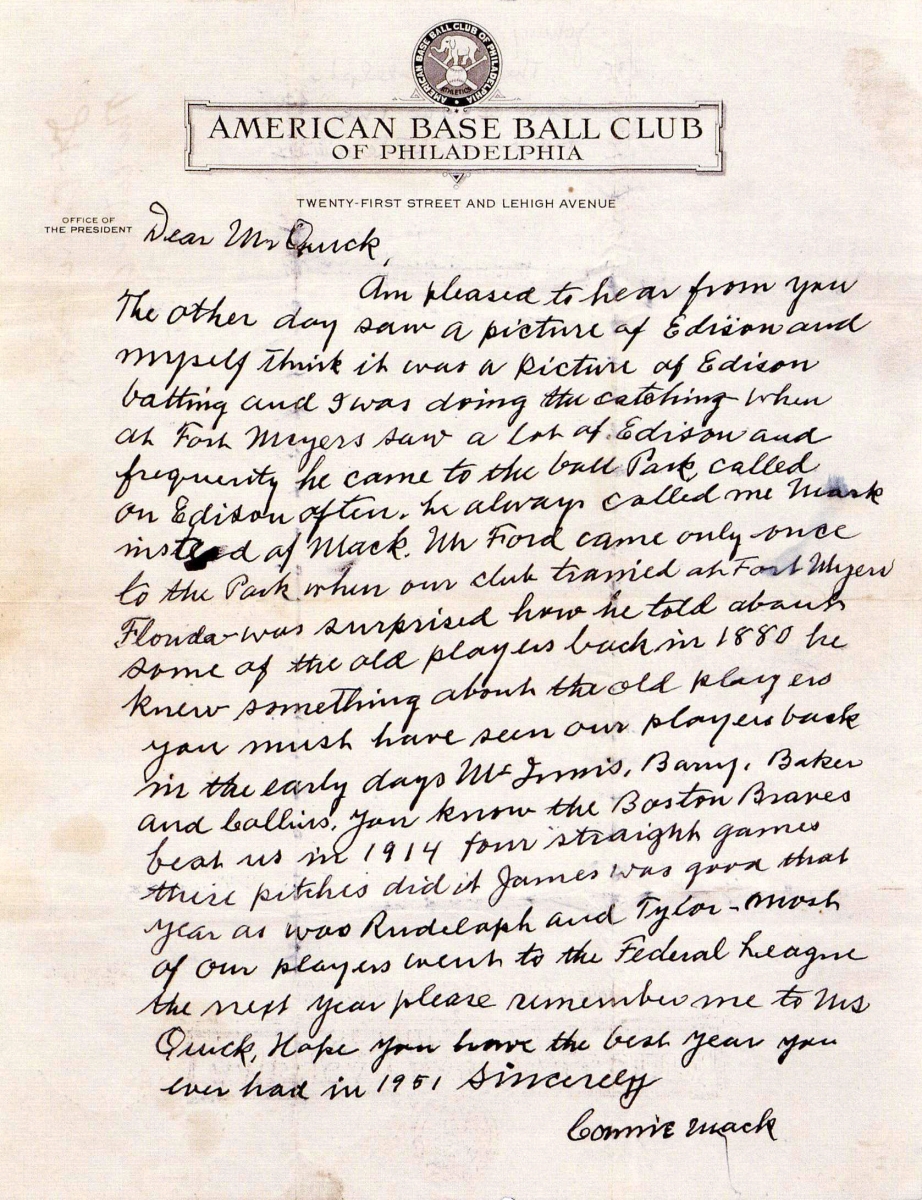 AMERICAN BASE BALL CLUB OF PHILADELPHIA
ATHLETICS
AMERICAN BASE BALL CLUB
OF PHILADELPHIA
TWENTY-FIRST STREET AND LEHIGH AVENUE
OFFICE OF
THE PRESIDENT
Dear Mr Quick,
Am pleased to hear from you
The other day saw a picture of Edison and
myself think it was a Picture of Edison
batting and I was doing the catching when
at Fort Meyers saw a lot of Edison and
frequently he came to the ball Park, called
on Edison often. he always called me Mark
instead of Mack. Mr Ford came only once
to the Park when our club trained at Fort Myers
Florida - was surprised how he told about
some of the old players back in 1880 he
knew something about the old players
you must have seen our players back
in the early days McInnis, Barry, Baker
and Collins. You know the Boston Braves
beat us in 1914 four straight games
their pitches did it James was good that
year as was Rudolaph and Tylor - Most
of our players went to the Federal League
the next year please remember me to Mrs
Quick, Hope you have the best year you
ever had in 1951 Sincerely
Connie Mack